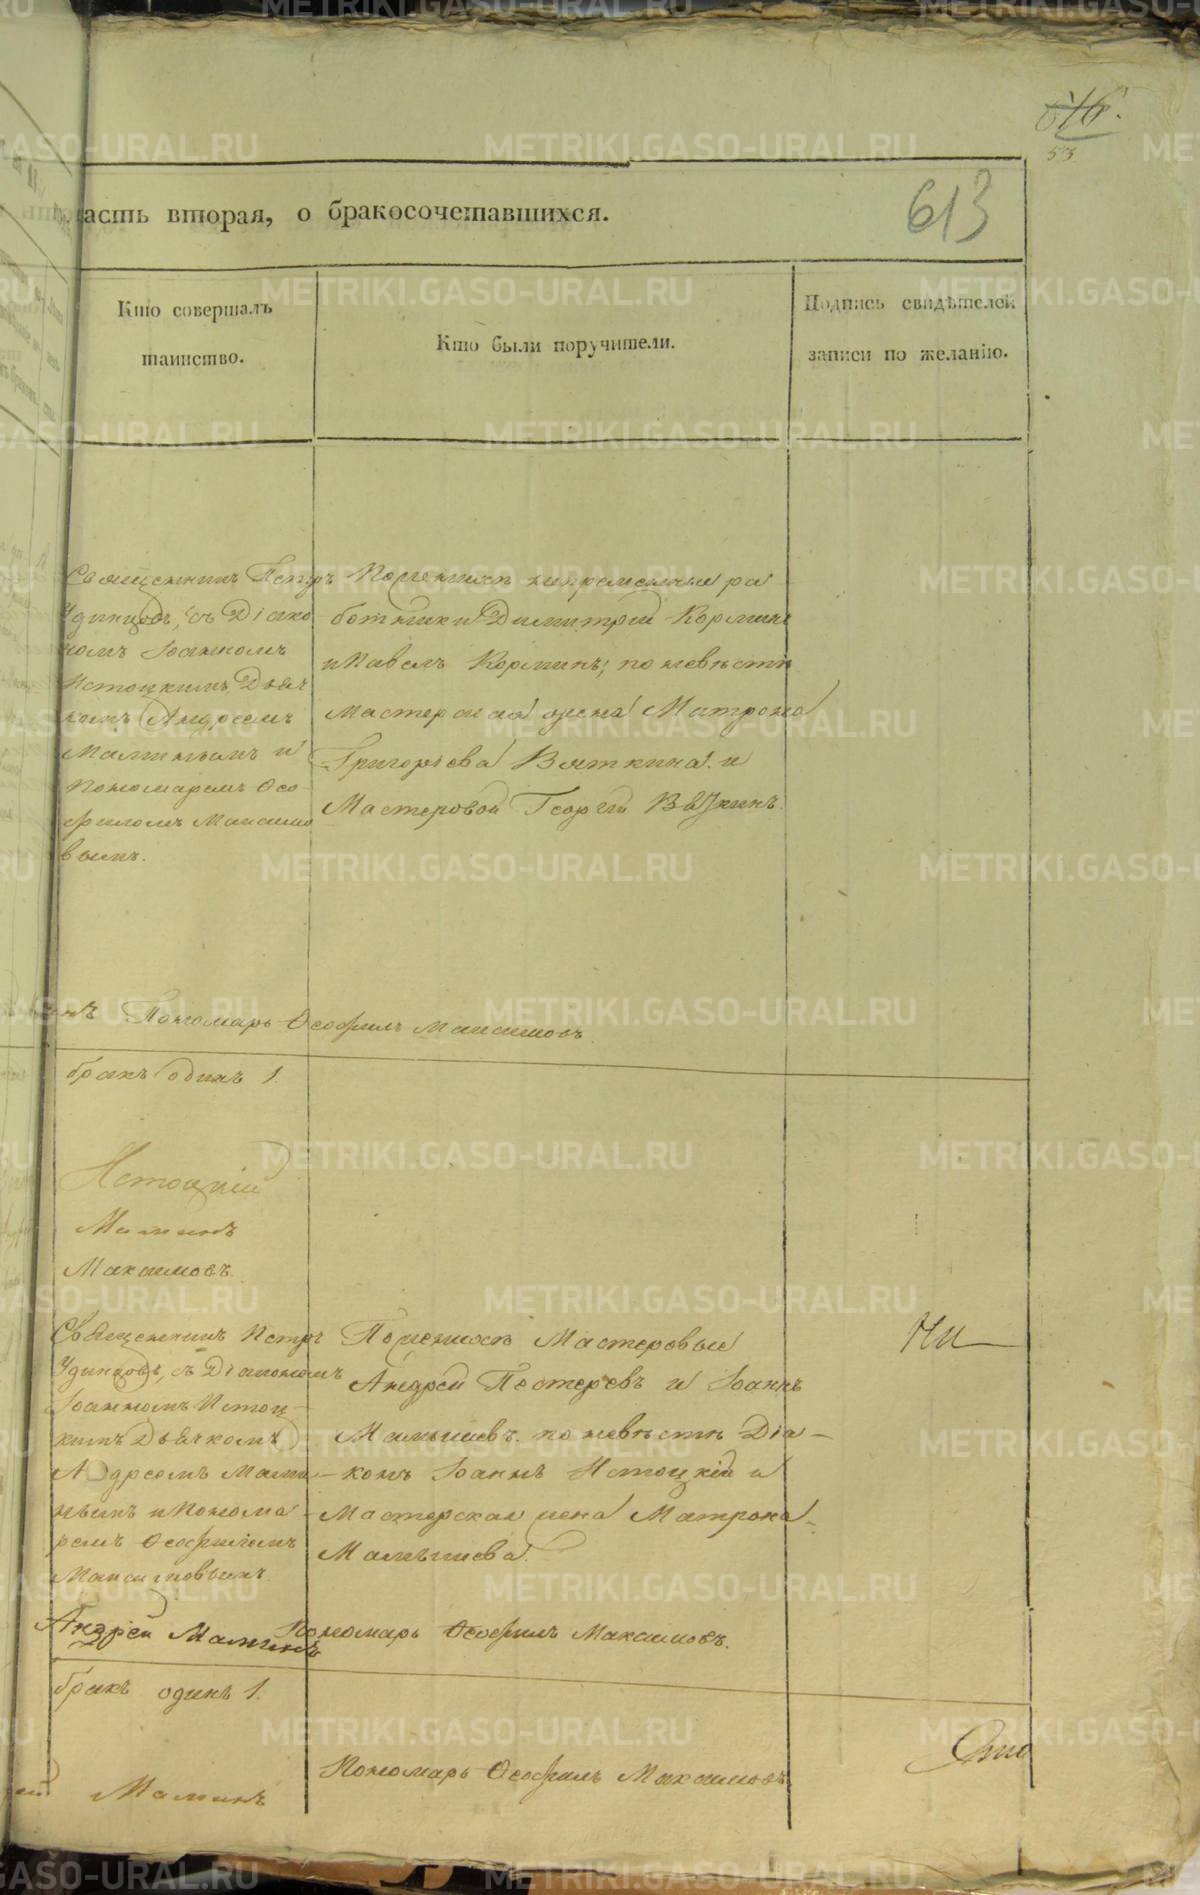 616.
53
613
асть вторая, о бракосочетавшихся.
Кто совершалъ
таинство.
Кто были поручители.
Подпись свидѣтелей
записи по желанію.
Священникъ Петръ
Удинцовъ, съ Діако
номъ Іоанномъ
Истоцкимъ, Дьяч
комъ Андреемъ
Маминымъ и
Пономаремъ Ѳео-
филомъ Максимо
вымъ.
По женихѣ непремѣнные ра-
ботники Димитрій Корминъ
и Павелъ Корминъ; по невѣстѣ
Мастерская жена Матрона
Григорьева Вяткина и
Мастеровой Георгій
Пономарь Ѳеофилъ Максимовъ.
бракъ одинъ 1.
Истоцкій
Маминъ
Максимовъ.
Священникъ Петръ
Удинцовъ, съ Діакономъ
Іоанномъ Истоц-
кимъ Дьячкомъ
Андреемъ Мами-
нымъ и Понома-
ремъ Ѳеофиломъ
Максимовымъ.
По женихѣ Мастеровые
Андрей Пестеревъ и Іоаннъ
Малышевъ. по невѣстѣ Діа-
конъ Іоаннъ Истоцкій и
Мастерская жена Матрона
Малышева.
Андрей Маминъ
Пономарь Ѳеофилъ Максимовъ.
бракъ одинъ 1.
Маминъ
Пономарь Ѳеофилъ Максимовъ.
METRIKI.GASO-URAL.RU